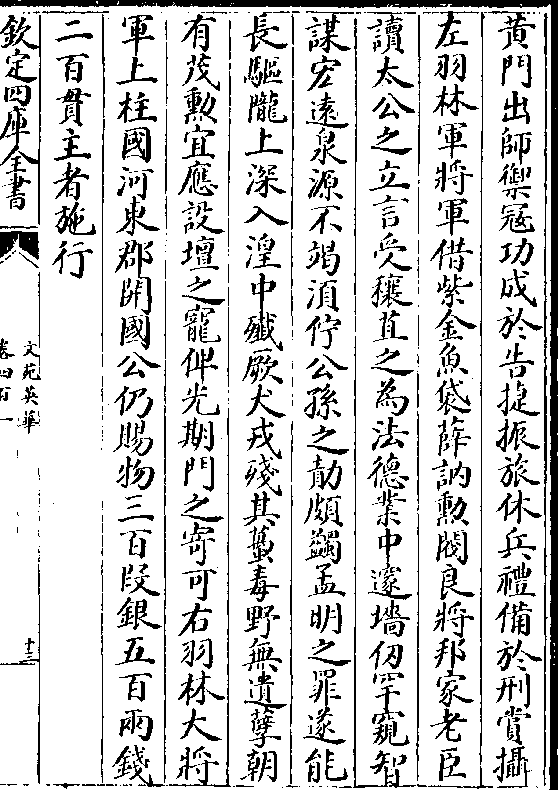 黄門出師禦冦功成於告捷振旅休兵禮備於刑賞攝
左羽林軍將軍借紫金魚袋薛訥勲閥良將邦家老臣
讀太公之立言受穰苴之為法德業中邃墻仞罕窺智
謀宏逺泉源不竭湏佇公孫之勣頗蠲孟明之罪遂能
長驅隴上深入湟中殱厥犬戎殘其蠆毒野無遺孽朝
有茂勲宜應設壇之寵俾光期門之寄可右羽林大將
軍上柱國河東郡開國公仍賜物三百段銀五百兩錢
二百貫主者施行
欽定四庫全書
文苑英華
卷四百一
十三